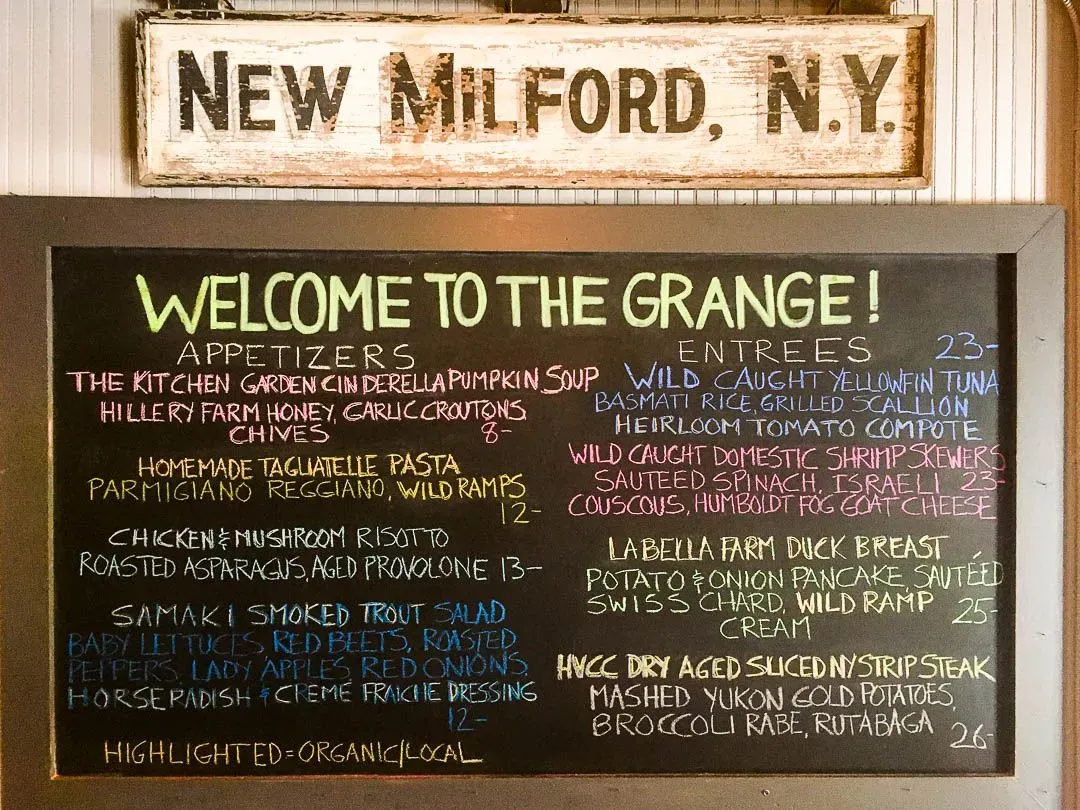 NEW MILFORD, N.Y.
WELCOME TO THE GRANGE!
APPETIZERS
THE KITCHEN GARDEN CINDERELLA PUMPKIN SOUP
HILLERY FARM HONEY, GARLIC CROUTONS
CHIVES 8-
HOMEMADE TAGLIATELLE PASTA
PARMIGIANO REGGIANO, WILD RAMPS
12-
CHICKEN & MUSHROOM RISOTTO
ROASTED ASPARAGUS, AGED PROVOLONE 13-
SAMAKI SMOKED TROUT SALAD
BABY LETTUCES, RED BEETS, ROASTED
PEPPERS, LADY APPLES RED ONIONS,
HORSERADISH & CREME FRAICHE DRESSING
12-
HIGHLIGHTED = ORGANIC/LOCAL
ENTREES 23-
WILD CAUGHT YELLOWFIN TUNA
BASMATI RICE, GRILLED SCALLION
HEIRLOOM TOMATO COMPOTE
WILD CAUGHT DOMESTIC SHRIMP SKEWERS
SAUTEED SPINACH, ISRAELI 23-
COUSCOUS, HUMBOLDT FOG GOAT CHEESE
LABELLA FARM DUCK BREAST
POTATO & ONION PANCAKE, SAUTÉED
SWISS CHARD, WILD RAMP 25-
CREAM
HVCC DRY AGED SLICED NY STRIP STEAK
MASHED YUKON GOLD POTATOES,
BROCCOLI RABE, RUTABAGA 26-